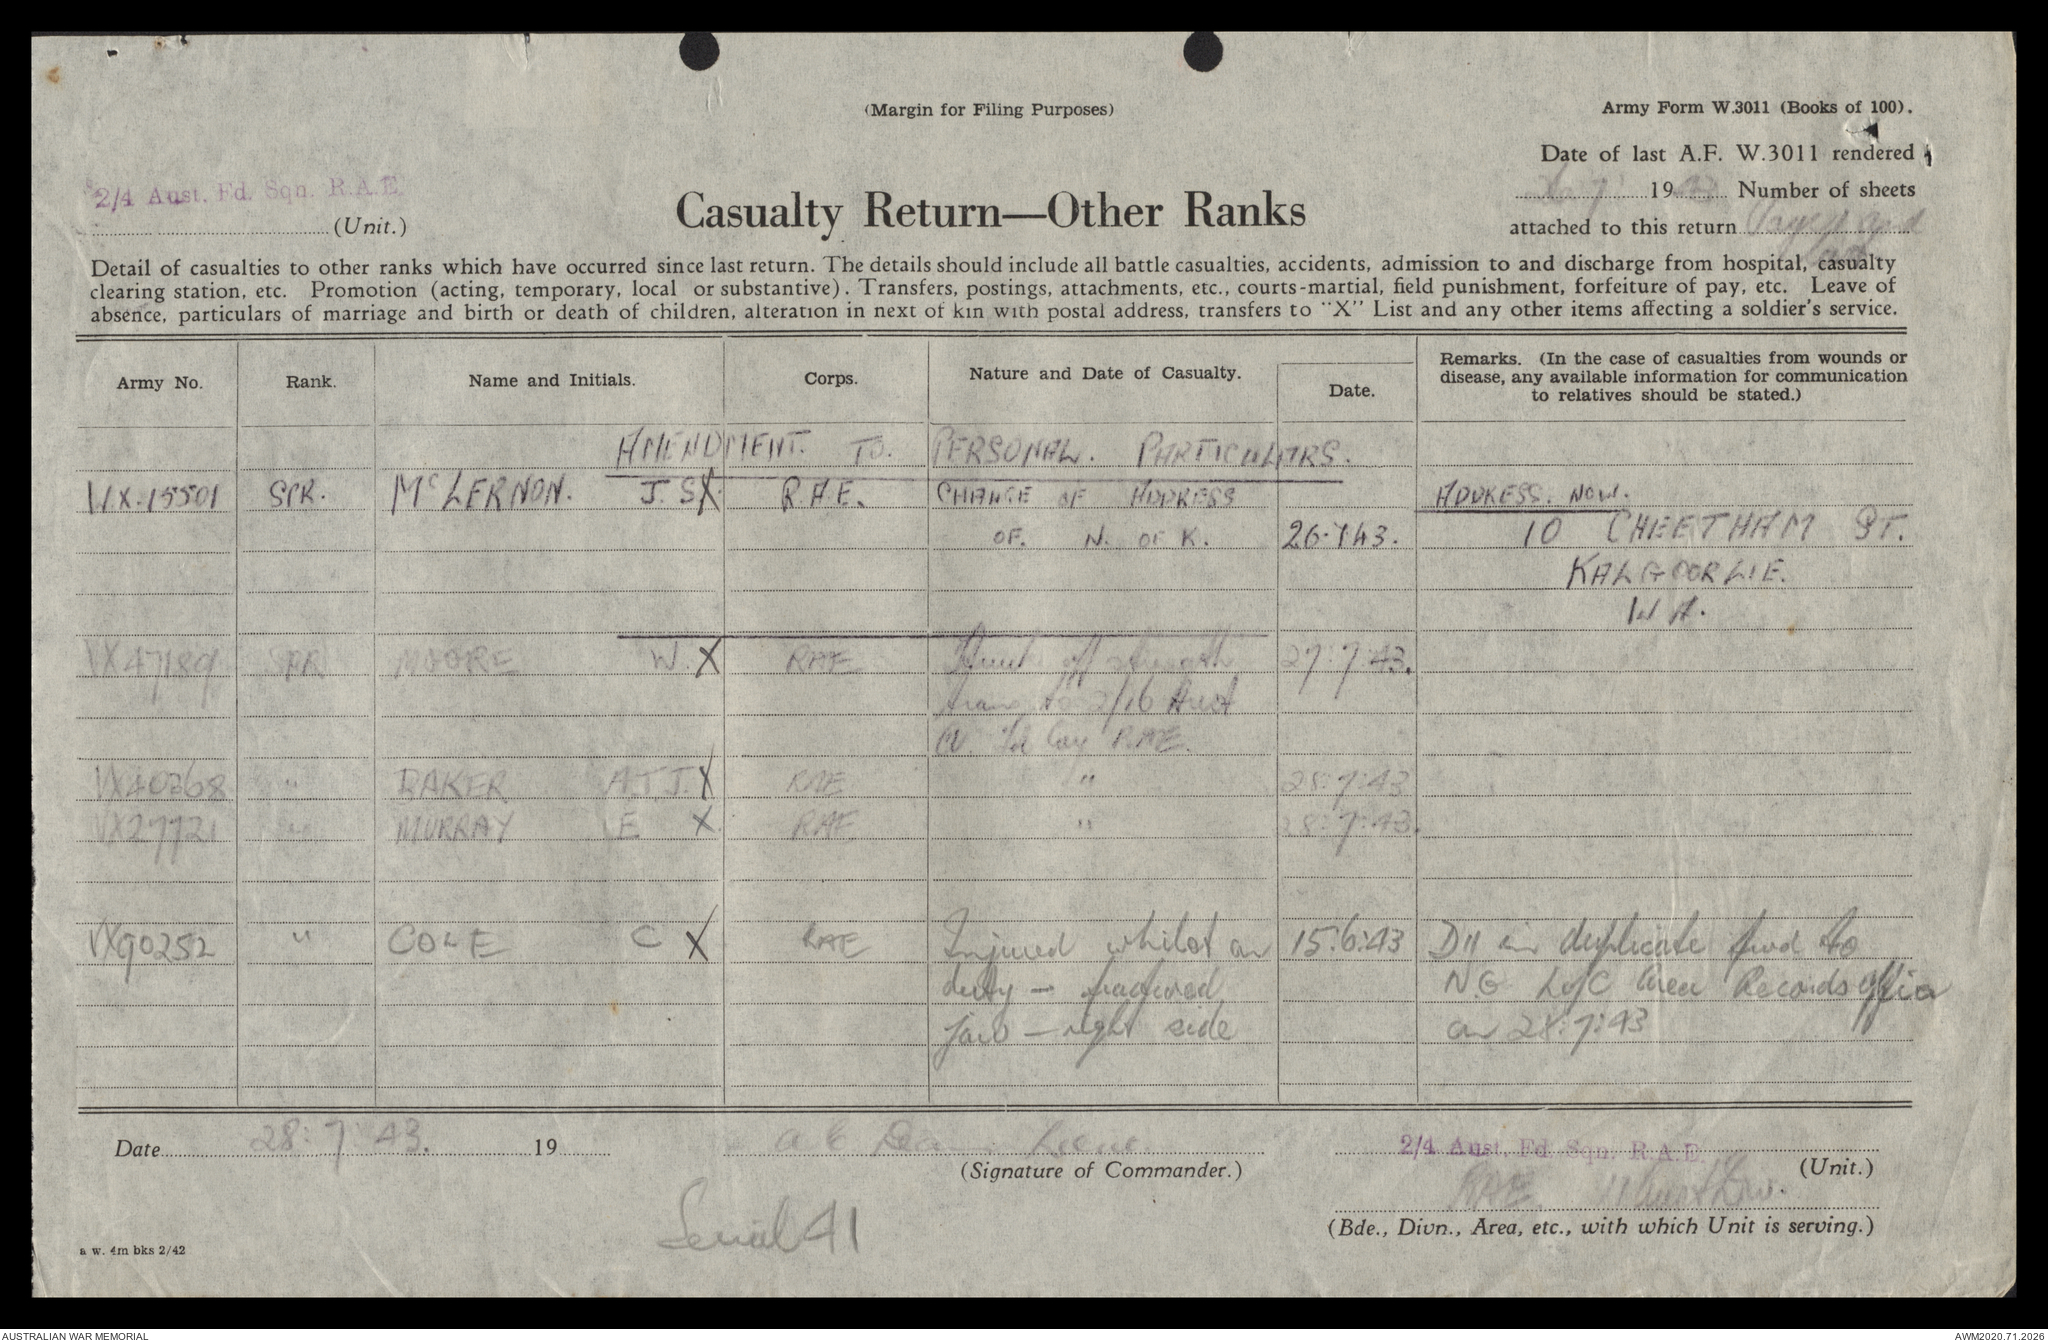 (Margin for Filing Purposes)
Army Form W.3011 (Books of 100).
Date of last A.F. W.3011 rendered
1943 Number of sheets
attached to this return
2/4 Aust. Fd. Sqn. R.A.E.
(Unit.)
Casualty Return—Other Ranks
Detail of casualties to other ranks which have occurred since last return. The details should include all battle casualties, accidents, admission to and discharge from hospital, casualty
clearing station, etc. Promotion (acting, temporary, local or substantive). Transfers, postings, attachments, etc., courts-martial, field punishment, forfeiture of pay, etc. Leave of
absence, particulars of marriage and birth or death of children, alteration in next of kin with postal address, transfers to "X" List and any other items affecting a soldier's service.
Army No. Rank. Name and Initials. Corps. Nature and Date of Casualty. Date. Remarks. (In the case of casualties from wounds or
disease, any available information for communication
to relatives should be stated.)
AMENDMENT. TO. PERSONAL. PARTICULARS.
WX.15501 SPR. McLERNON. J. S X R.A.E. CHANGE OF ADDRESS ADDRESS. NOW.
OF. N. OF K. 26.7.43. 10 CHEETHAM ST.
KALGOORLIE.
W A.
VX47189 SPR MOORE W. X RAE Struck off strength 27:7:43.
trans to 2/16 Aust
Fd Coy RAE.
VX40368 " BAKER A.J.J. X RAE " 28:7:43
VX27721 " MURRAY E X RAE " 28:7:43.
VX90252 " COLE C X RAE Injured whilst on 15:6:43 D11 in duplicate fwd to
duty - fractured N.G LofC Area Records office
jaw - right side on 28:7:43
Date 28:7:43. 19
(Signature of Commander.)
2/4 Aust. Fd. Sqn. R.A.E.
(Unit.)
RAE
(Bde., Divn., Area, etc., with which Unit is serving.)
Serial 41
a w. 4m bks 2/42
AUSTRALIAN WAR MEMORIAL
AWM2020.71.2026